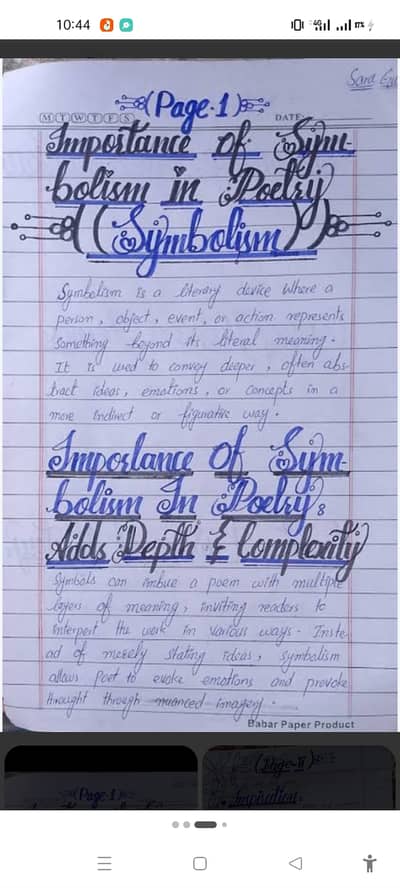 10:44 4G 17%
Sara
(Page-1)
M T W T F S DATE:
Importance of Sym-
bolism in Poetry
((Symbolism))
Symbolism is a literary device where a
person, object, event, or action represents
something beyond its literal meaning.
It is used to convey deeper, often abs-
tract ideas, emotions, or concepts in a
more indirect or figurative way.
Importance Of Sym-
bolism In Poetry:
Adds Depth & Complexity
Symbols can imbue a poem with multiple
layers of meaning, inviting readers to
interpert the work in various ways. Inste-
ad of merely stating ideas, symbolism
allows poet to evoke emotions and provoke
thought through nuanced imagery.
Babar Paper Product
(Page-1)
(Page-II)